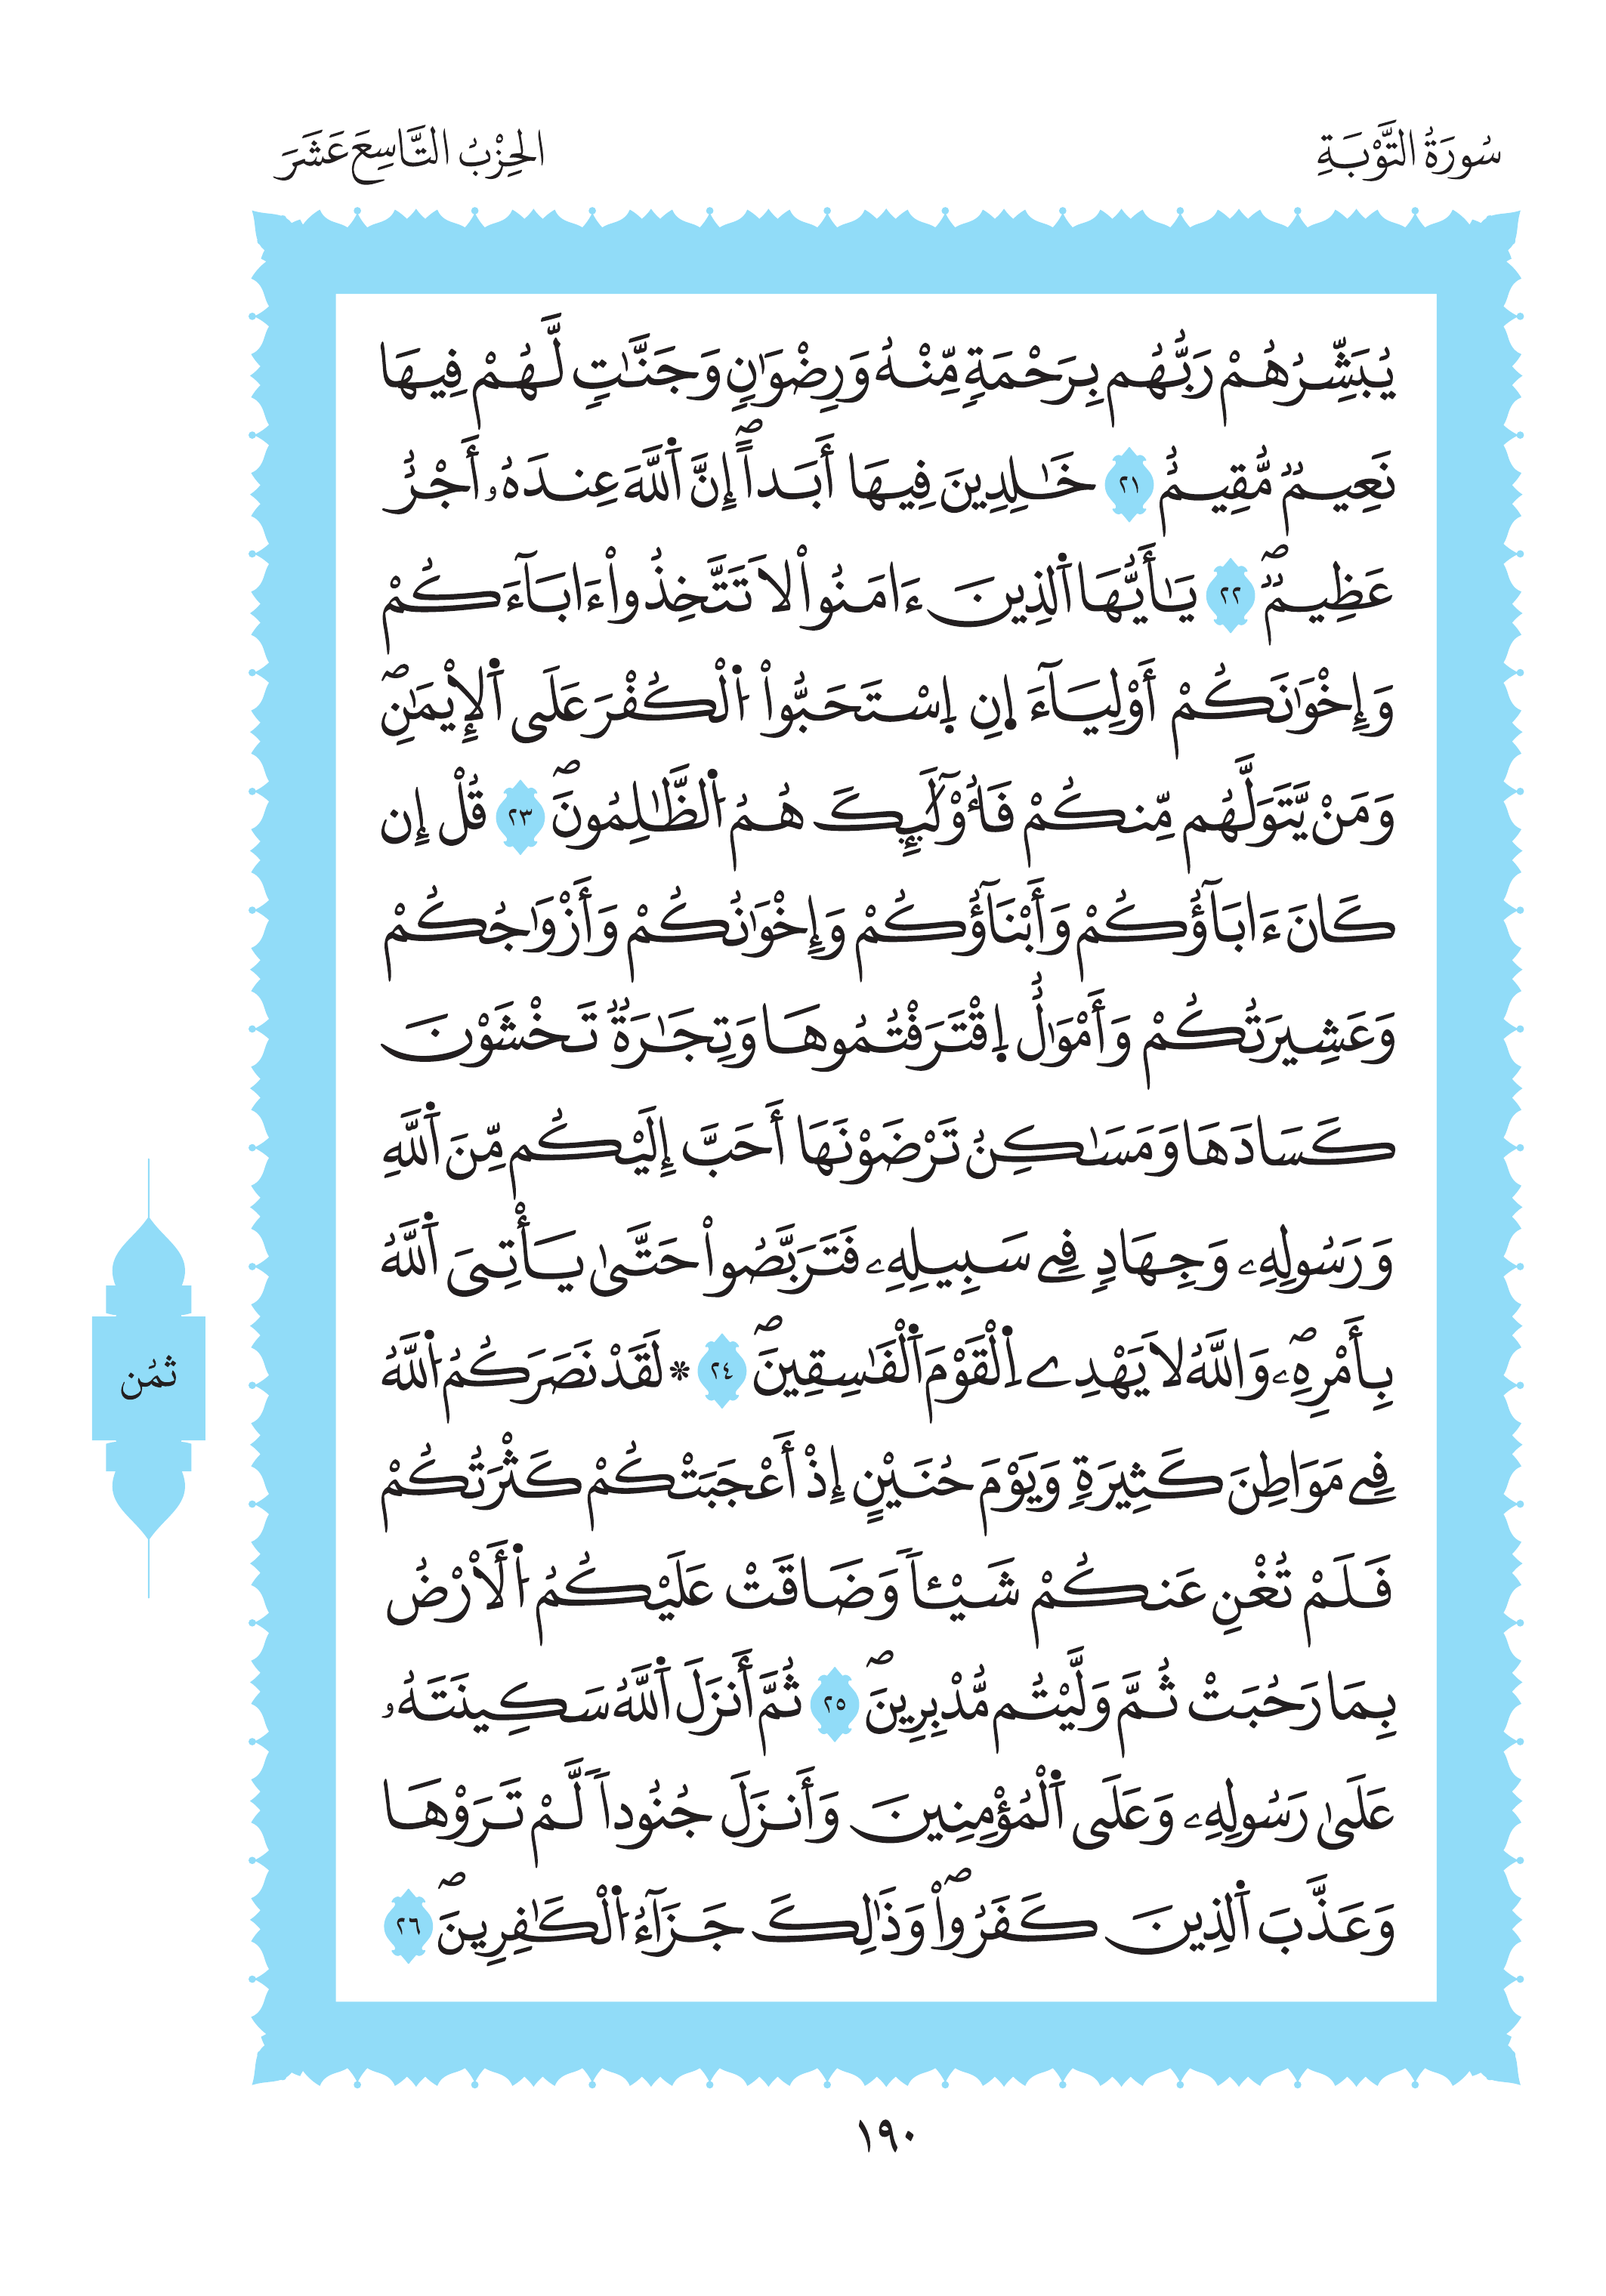 سُورَةُ التَّوْبَةِ
الحِزْبُ التَّاسِعَ عَشَرَ
يُبَشِّرُهُمْ رَبُّهُم بِرَحْمَةٍ مِّنْهُ وَرِضْوَٰنٍ وَجَنَّٰتٍ لَّهُمْ فِيهَا
نَعِيمٌ مُّقِيمٌ ٢١ خَٰلِدِينَ فِيهَا أَبَداًۖ إِنَّ اَ۬للَّهَ عِندَهُۥ أَجْرٌ
عَظِيمٌۖ ٢٢ يَٰأَيُّهَا اَ۬لذِينَ ءَامَنُواْ لَا تَتَّخِذُواْ ءَابَآءَكُمْ
وَإِخْوَٰنَكُمْ أَوْلِيَآءَ ا۪نِ اِ۪سْتَحَبُّواْ اُ۬لْكُفْرَ عَلَى اَ۬لْإِيمَٰنِۖ
وَمَنْ يَّتَوَلَّهُم مِّنكُمْ فَأُوْلَٰٓئِكَ هُمُ اُ۬لظَّٰلِمُونَۖ ٢٣ قُلْ إِن
كَانَ ءَابَآؤُكُمْ وَأَبْنَآؤُكُمْ وَإِخْوَٰنُكُمْ وَأَزْوَٰجُكُمْ
وَعَشِيرَتُكُمْ وَأَمْوَٰلٌ اِ۪قْتَرَفْتُمُوهَا وَتِجَٰرَةٌ تَخْشَوْنَ
كَسَادَهَا وَمَسَٰكِنُ تَرْضَوْنَهَا أَحَبَّ إِلَيْكُم مِّنَ اَ۬للَّهِ
وَرَسُولِهِۦ وَجِهَادٍ فِے سَبِيلِهِۦ فَتَرَبَّصُواْ حَتَّىٰ يَأْتِىَ اَ۬للَّهُ
بِأَمْرِهِۦۖ وَاللَّهُ لَا يَهْدِے اِ۬لْقَوْمَ اَ۬لْفَٰسِقِينَۖ ٢٤ * لَقَدْ نَصَرَكُمُ اُ۬للَّهُ
فِے مَوَاطِنَ كَثِيرَةٍ وَيَوْمَ حُنَيْنٍ إِذْ أَعْجَبَتْكُمْ كَثْرَتُكُمْ
فَلَمْ تُغْنِ عَنكُمْ شَيْـٔاً وَضَاقَتْ عَلَيْكُمُ اُ۬لْأَرْضُ
بِمَا رَحُبَتْ ثُمَّ وَلَّيْتُم مُّدْبِرِينَۖ ٢٥ ثُمَّ أَنزَلَ اَ۬للَّهُ سَكِينَتَهُۥ
عَلَىٰ رَسُولِهِۦ وَعَلَى اَ۬لْمُؤْمِنِينَ وَأَنزَلَ جُنُوداً لَّمْ تَرَوْهَا
وَعَذَّبَ اَ۬لذِينَ كَفَرُواْۖ وَذَٰلِكَ جَزَآءُ اُ۬لْكَٰفِرِينَۖ ٢٦
ثمُن
١٩٠